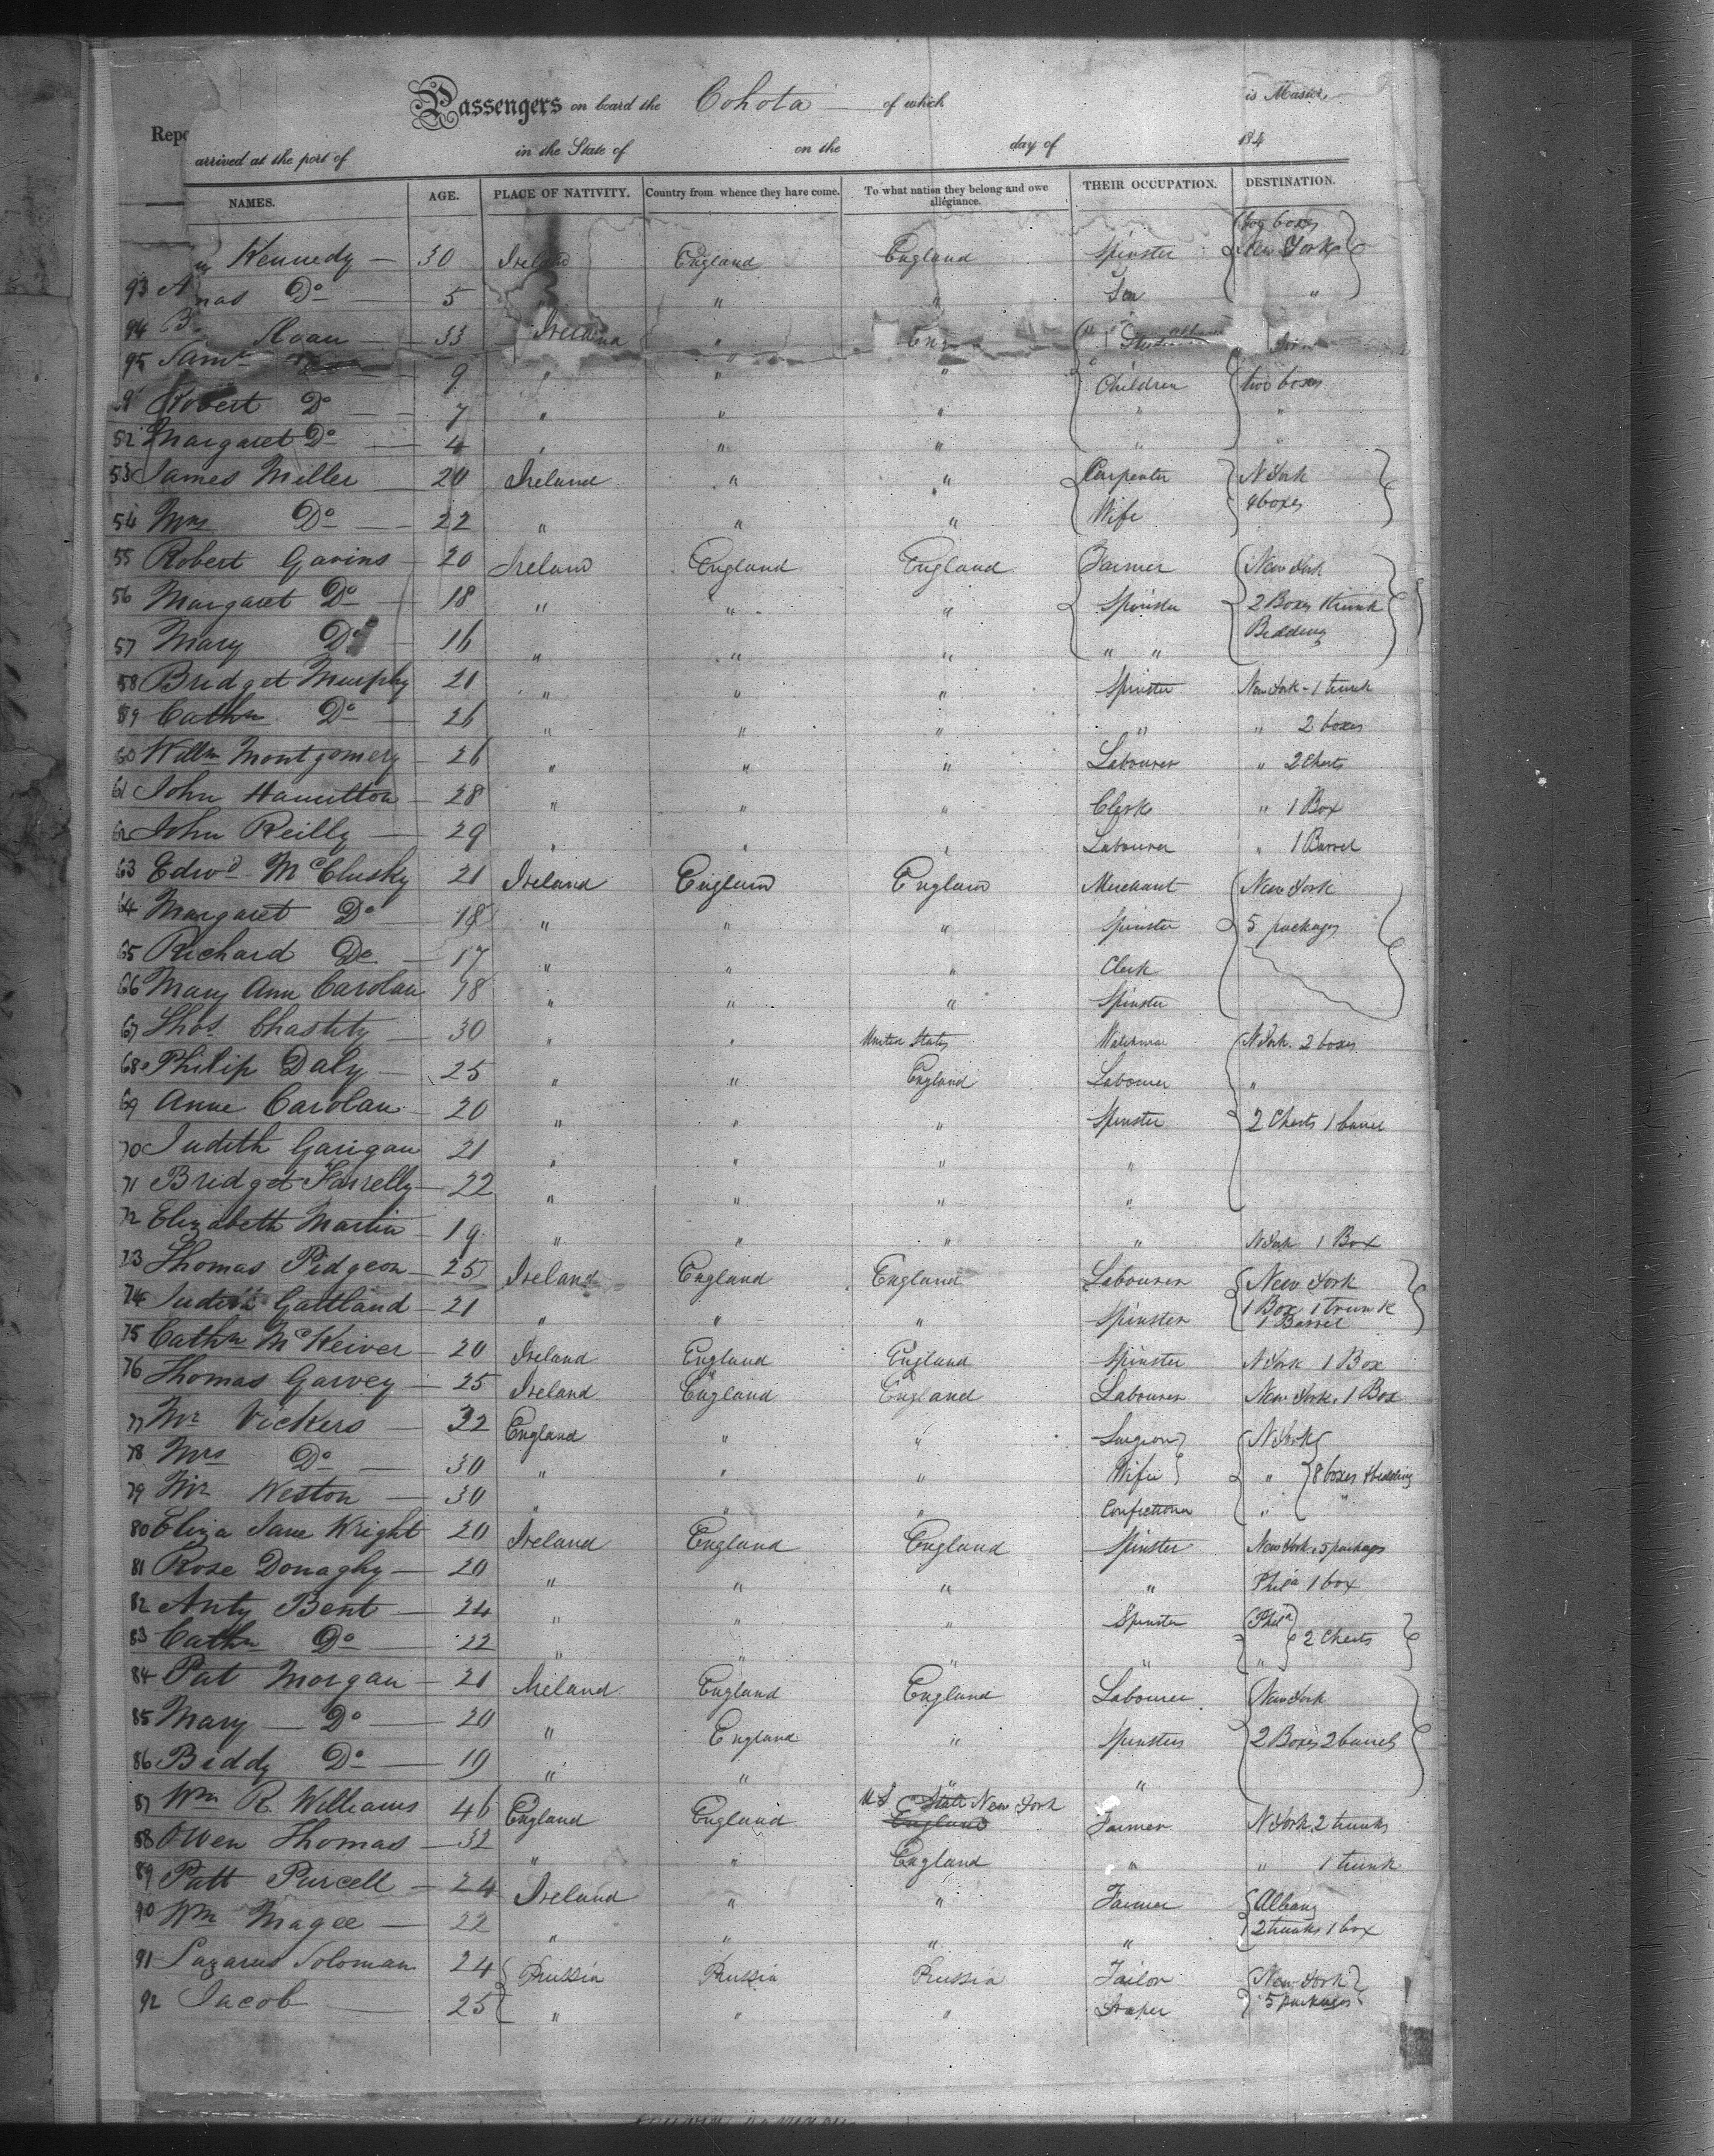 Passengers on board the Cohota of which is Master,
Repo
arrived at the port of in the State of on the day of 184
NAMES. AGE. PLACE OF NATIVITY. Country from whence they have come. To what nation they belong and owe allegiance. THEIR OCCUPATION. DESTINATION.
boxes
Kennedy 30 Ireland England England Spinster New York
93 A nas Do 5 " " " "
94 B. Sloan 33 Ireland "
95 Saml 9 " " " Children two boxes
Robert Do 7 " " " " "
52 Margaret Do 4 " " " " "
53 James Miller 20 Ireland " " Carpenter N York
54 Mrs Do 22 " " " Wife 4 boxes
55 Robert Gavins 20 Ireland England England Farmer New York
56 Margaret Do 18 " " " Spinster 2 Boxes 1 trunk
57 Mary Do 16 " " " " " Bedding
58 Bridget Murphy 21 " " " Spinster New York - 1 trunk
59 Cathn Do 26 " " " " " 2 boxes
60 Willm Montgomery 26 " " " Labourer " 2 Chests
61 John Hamilton 28 " " " Clerk " 1 Box
62 John Reilly 29 " " " Labourer " 1 Barrel
63 Edwd McClusky 21 Ireland England England Merchant New York
64 Margaret Do 18 " " " Spinster 5 packages
65 Richard Do 17 " " " Clerk
66 Mary Ann Carolan 18 " " " Spinster
67 Thos Chastity 30 " " United States N York. 2 boxes
68 Philip Daly 25 " " England Labourer "
69 Anne Carolan 20 " " " Spinster 2 Chests 1 barrel
70 Judith Garigan 21 " " " "
71 Bridget Farrelly 22 " " " "
72 Elizabeth Martin 19 " " " " N York 1 Box
73 Thomas Pidgeon 25 Ireland England England Labourer New York
74 Judith Gattland 21 " " " Spinster 1 Box 1 trunk 1 Barrel
75 Cathn McKeiver 20 Ireland England England Spinster N York 1 Box
76 Thomas Garvey 25 Ireland England England Labourer New York. 1 Box
77 Mr Vickers 32 England " " Surgeon N York
78 Mrs Do 30 " " " Wife " 8 boxes & bedding
79 Mr Weston 30 " " " Confectioner " "
80 Eliza Jane Wright 20 Ireland England England Spinster New York. 5 packages
81 Rose Donaghy 20 " " " " Phila 1 box
82 Anty Bent 24 " " " Spinster Phila
83 Cathn Do 22 " " " " " 2 Chests
84 Pat Morgan 21 Ireland England England Labourer New York
85 Mary Do 20 " England " Spinsters 2 Boxes 2 barrels
86 Biddy Do 19 " " " "
87 Wm R. Williams 46 England England U S State New York England Farmer N York 2 trunks
88 Owen Thomas 32 " " England " " 1 trunk
89 Patt Purcell 24 Ireland " " Farmer Albany
90 Wm Magee 22 " " " " 2 trunks 1 box
91 Lazarus Soloman 24 Prussia Prussia Prussia Tailor New York
92 Jacob 25 " " " Draper 5 packages